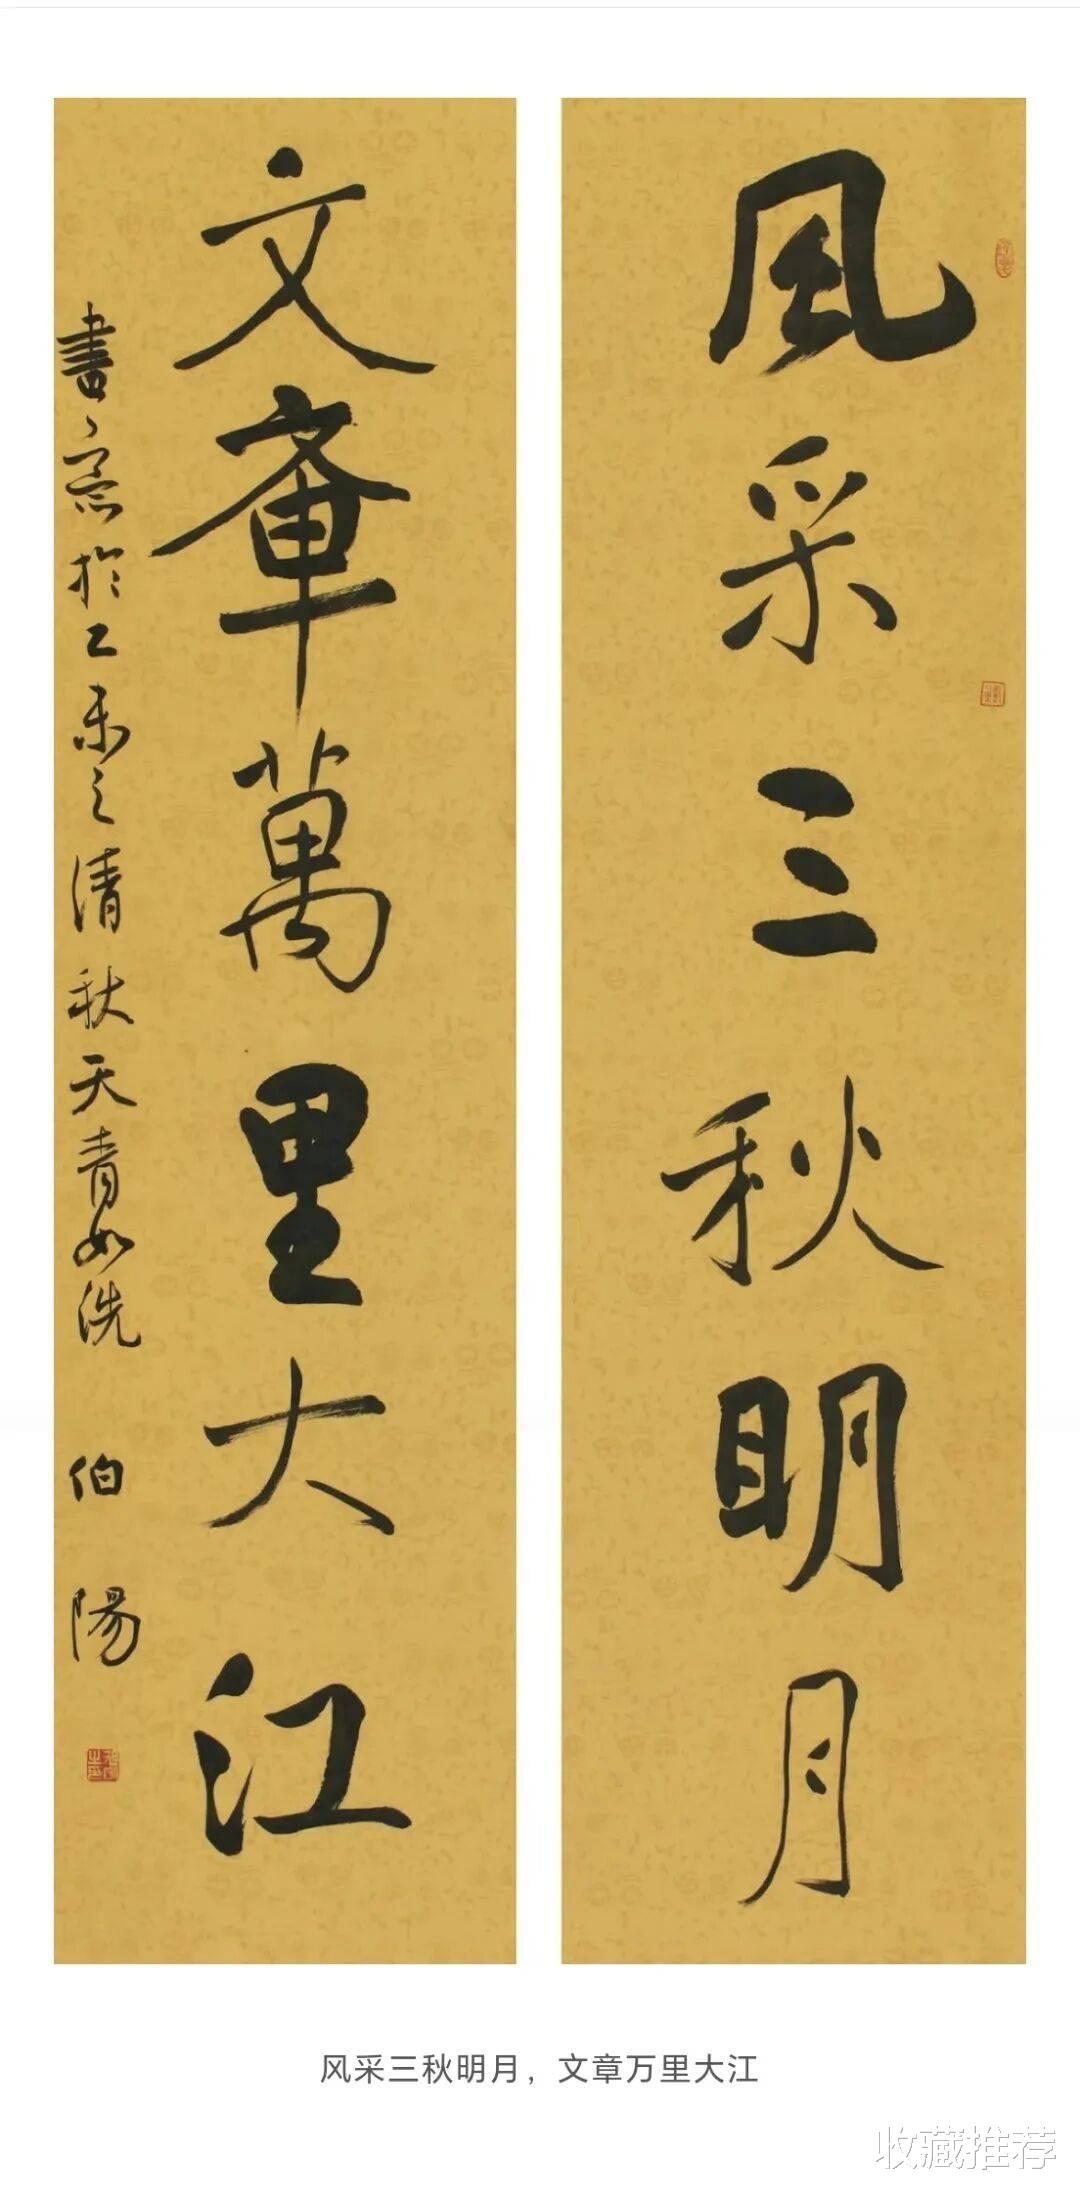 风采三秋明月
文章萬里大江
於乙未之清秋天青如洗
伯陽
风采三秋明月，文章万里大江
收藏推荐